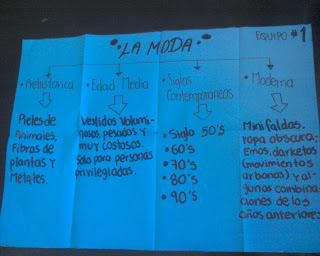 EQUIPO #1
• LA MODA •
• Prehistorica
Pieles de
Animales,
Fibras de
plantas y
Metales.
• Edad Media
Vestidos Volumi-
nosos, pesados y
muy costosos.
Solo para personas
privilegiadas.
• Siglos
Contemporaneos
• Siglo 50's
• 60's
• 70's
• 80's
• 90's
• Moderna
Minifaldas,
ropa obscura,
Emos, darketos
(movimientos
urbanos) y al-
gunas combina-
ciones de los
años anteriores.